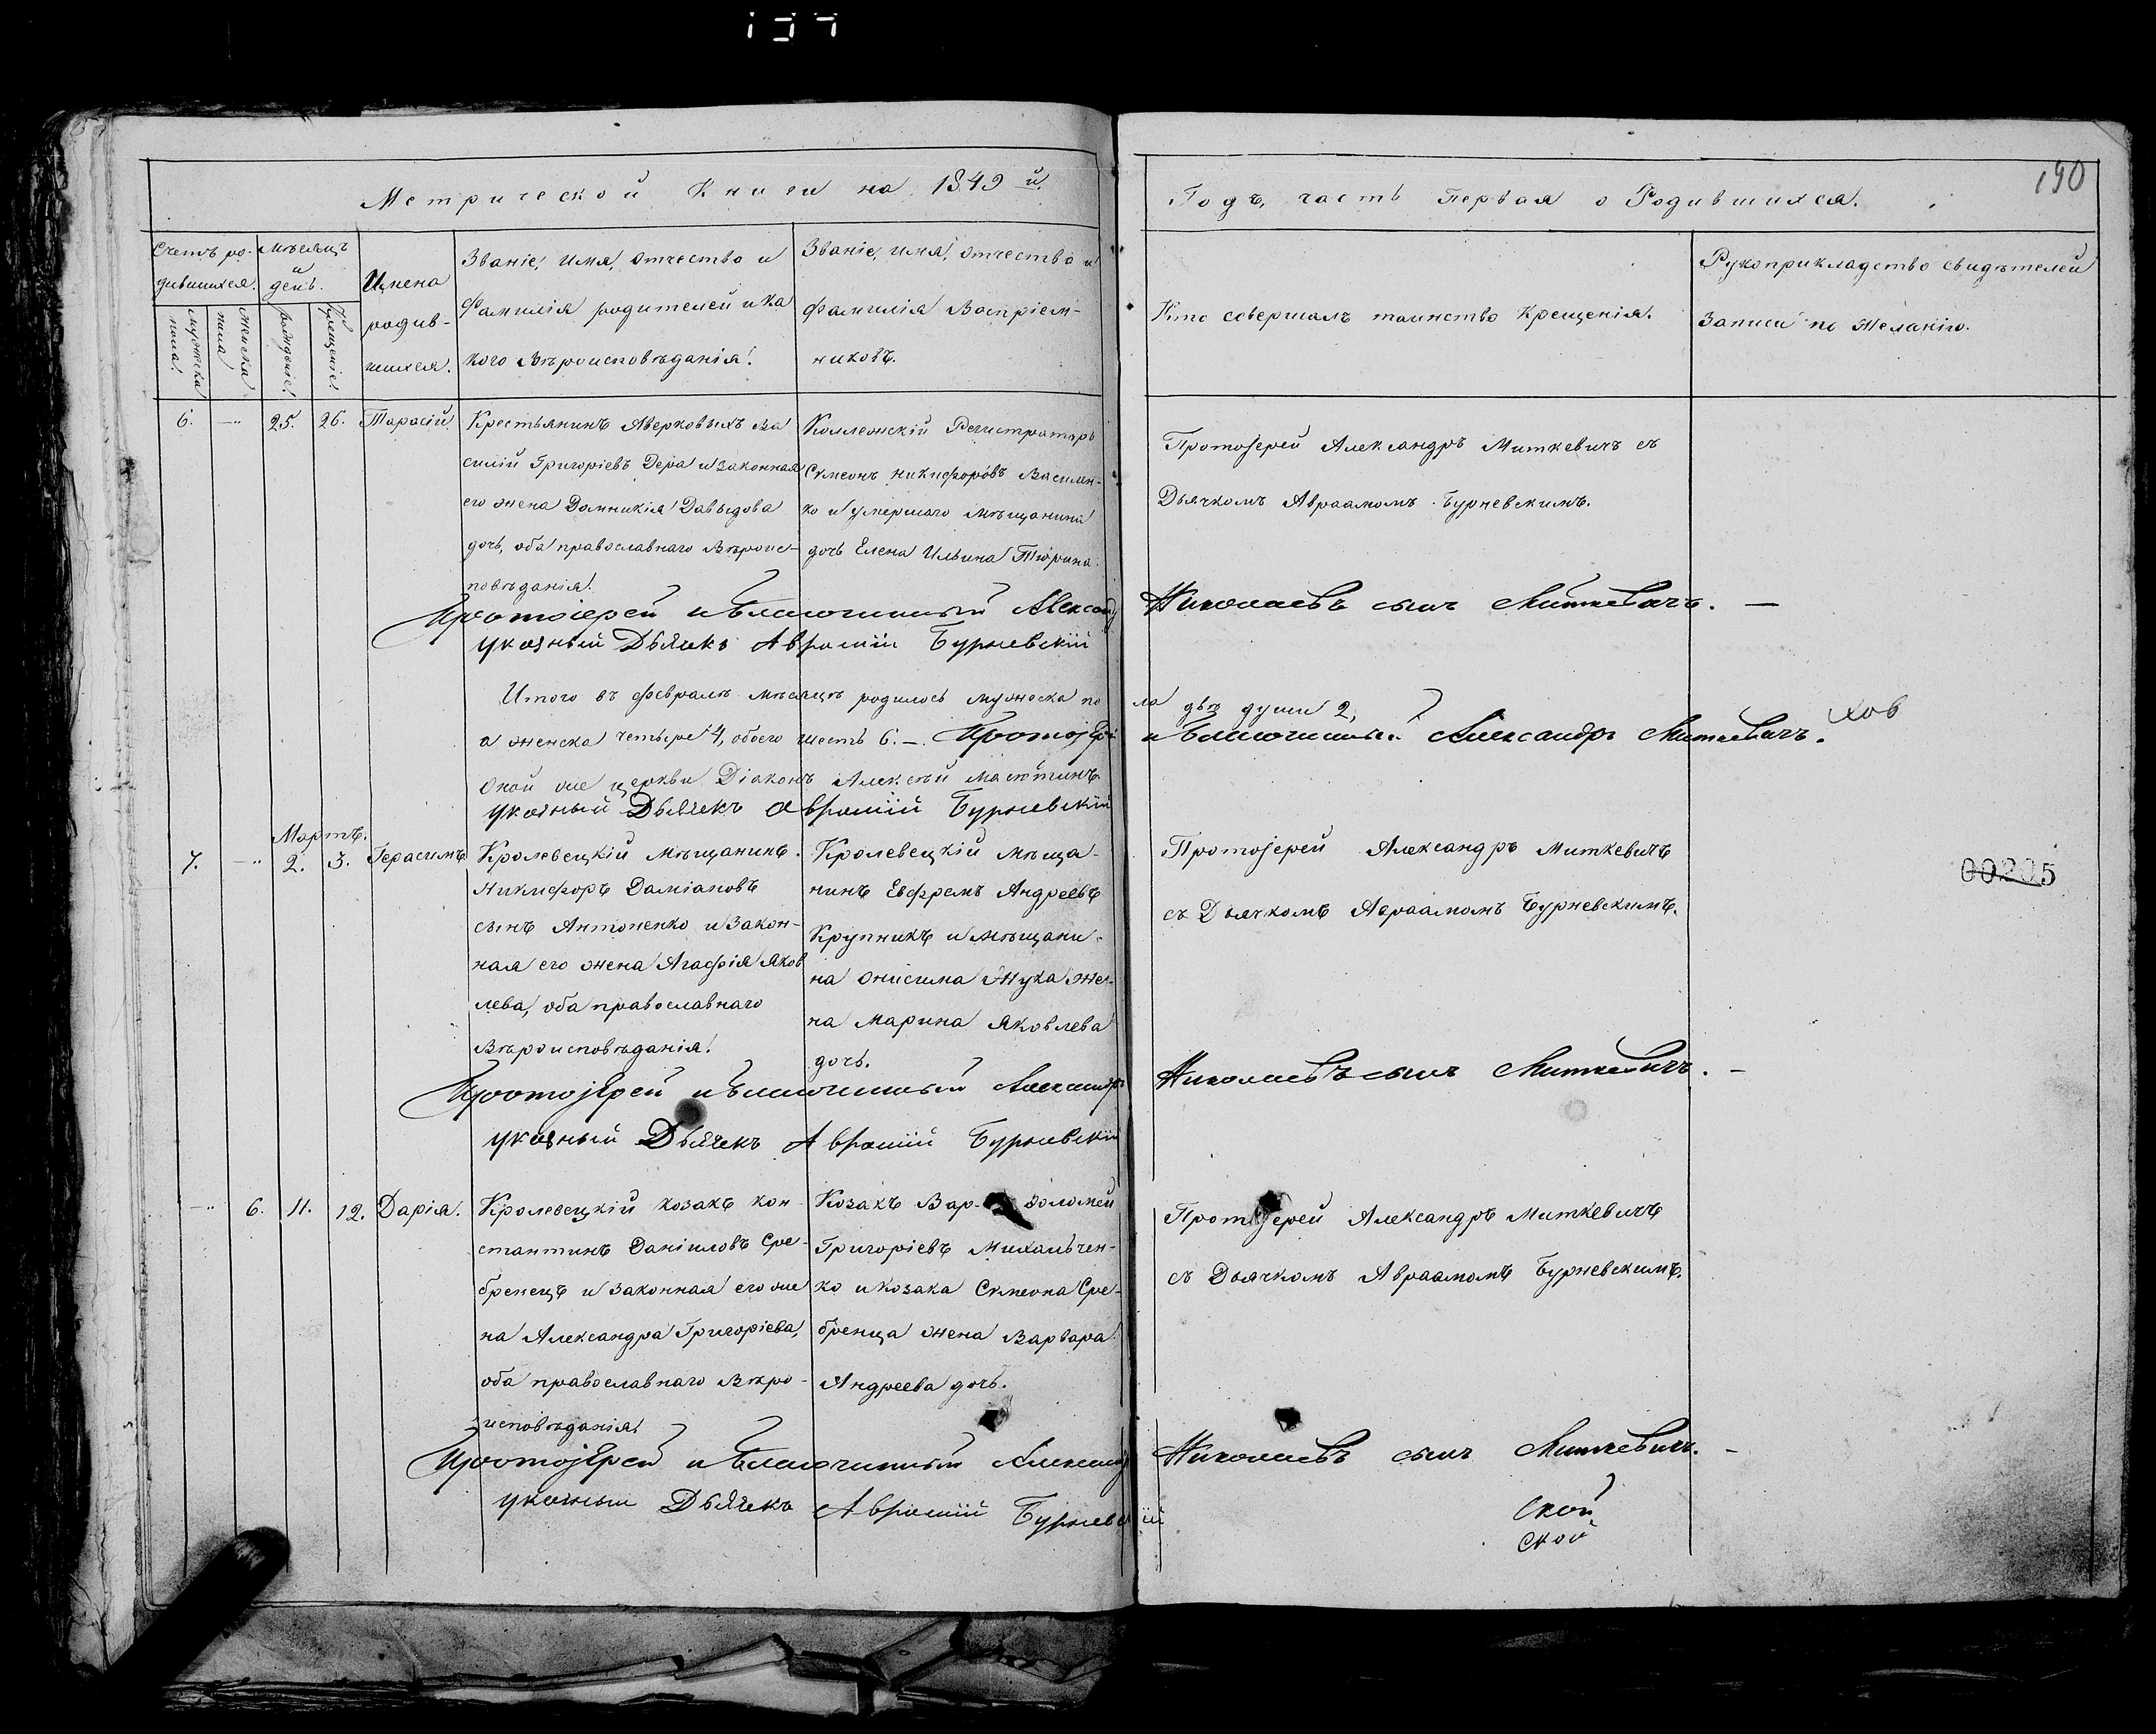 Метрической Книги на 1849й
Годъ, часть Первая о Родившихся.
190
Счетъ родившихся.
Мѣсяцъ и день.
мужеска пола.
женска пола
рожденіе.
крещеніе.
Имена родившихся.
Званіе, имя, отчество и
фамилія родителей и ка
кого Вѣроисповѣданія.
Званіе, имя, отчество и
фамилія Воспріем-
никовъ.
Кто совершалъ таинство Крещенія.
Рукоприкладство свидѣтелей
Записи по желанію.
6. — 25. 26. Тарасій
Крестьянинъ Аверковыхъ Ва
силій Григоріевъ Дера и законная
его жена Домникія Давыдова
дочь, оба православнаго Вѣроис-
повѣданія.
Коллежскій Регистраторъ
Сѵмеонъ Никифоровъ Василен-
ко и умершаго мѣщанина
дочь Елена Ильина Тюрина.
Протоіерей Александръ Миткевичъ съ
Дьячкомъ Авраамомъ Бурневскимъ.
Протоіерей и Благочинный Александ Николаевъ сынъ Миткевичъ. —
указный Дьячекъ Аврамій Бурневскій
Итого въ февралѣ мѣсяцѣ родилось мужеска по ла двѣ души 2,
а женска четыре 4, обоего шесть 6. —. Протоіерей и Благочинный Александръ Миткевичъ.
хов
Оной же церкви Діаконъ Алексѣй Масютинъ
указный Дьячекъ Аврамій Бурневскій
Мартъ.
7. — 2. 3. Герасимъ
Кролевецкій мѣщанинъ
Никифоръ Даміановъ
сынъ Антоненко и закон-
ная его жена Агафія Яков
лева, оба православнаго
Вѣроисповѣданія.
Кролевецкій мѣща-
нинъ Евфремъ Андреевъ
Крупникъ и мѣщани-
на Онисима Жука же-
на Марина Яковлева
дочь.
Протоіерей Александръ Миткевичъ
съ Дьячкомъ Авраамомъ Бурневскимъ.
00205
Протоіерей и Благочинный Александръ Николаевъ сынъ Миткевичъ. —
указный Дьячекъ Аврамій Бурневскій
— 6. 11. 12. Дарія.
Кролевецкій козакъ Кон
стантинъ Даніиловъ Сре-
бренецъ и законная его же
на Александра Григоріева,
оба православнаго Вѣро-
исповѣданія.
Козакъ Вар- оломей
Григоріевъ Михальчен-
ко и козака Сѵмеона Сре-
бренца жена Варвара
Андреева дочь.
Протоіерей Александръ Миткевичъ
съ Дьячкомъ Авраамомъ Бурневскимъ.
Протоіерей и Благочинный Александ Николаевъ сынъ Миткевичъ. —
указный Дьячекъ Аврамій Бурневскій
ской
ской